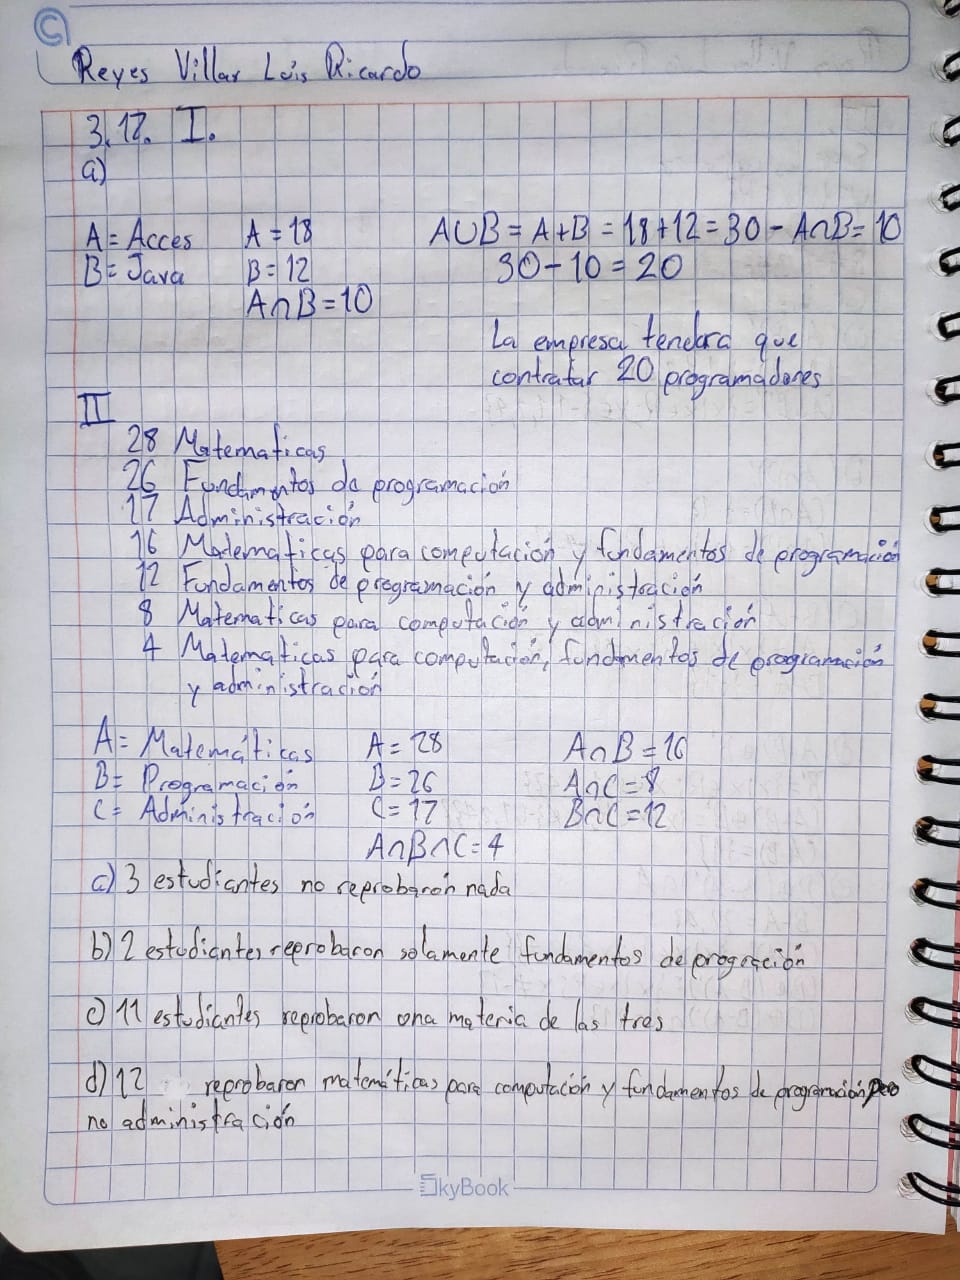 Reyes Villar Luis Ricardo
3.12. I.
a)
A= Acces A = 18 A∪B = A+B = 18+12=30 - A∩B= 10
B= Java B= 12 30-10=20
A∩B=10
La empresa tendra que
contratar 20 programadores
II
28 Matematicas
26 Fundamentos de programación
17 Administración
16 Matematicas para computación y fundamentos de programación
12 Fundamentos de programación y administración
8 Matematicas para computación y administración
4 Matematicas para computación, fundamentos de programación
y administración
A= Matemáticas A= 28 A∩B=16
B= Programación B=26 A∩C=8
C= Administración C=17 B∩C=12
A∩B∩C=4
a) 3 estudiantes no reprobarón nada
b) 2 estudiantes reprobaron solamente fundamentos de progración
c) 11 estudiantes reprobaron una materia de las tres
d) 12 reprobaron matemáticas para computación y fundamentos de programación pero
no administración
SkyBook